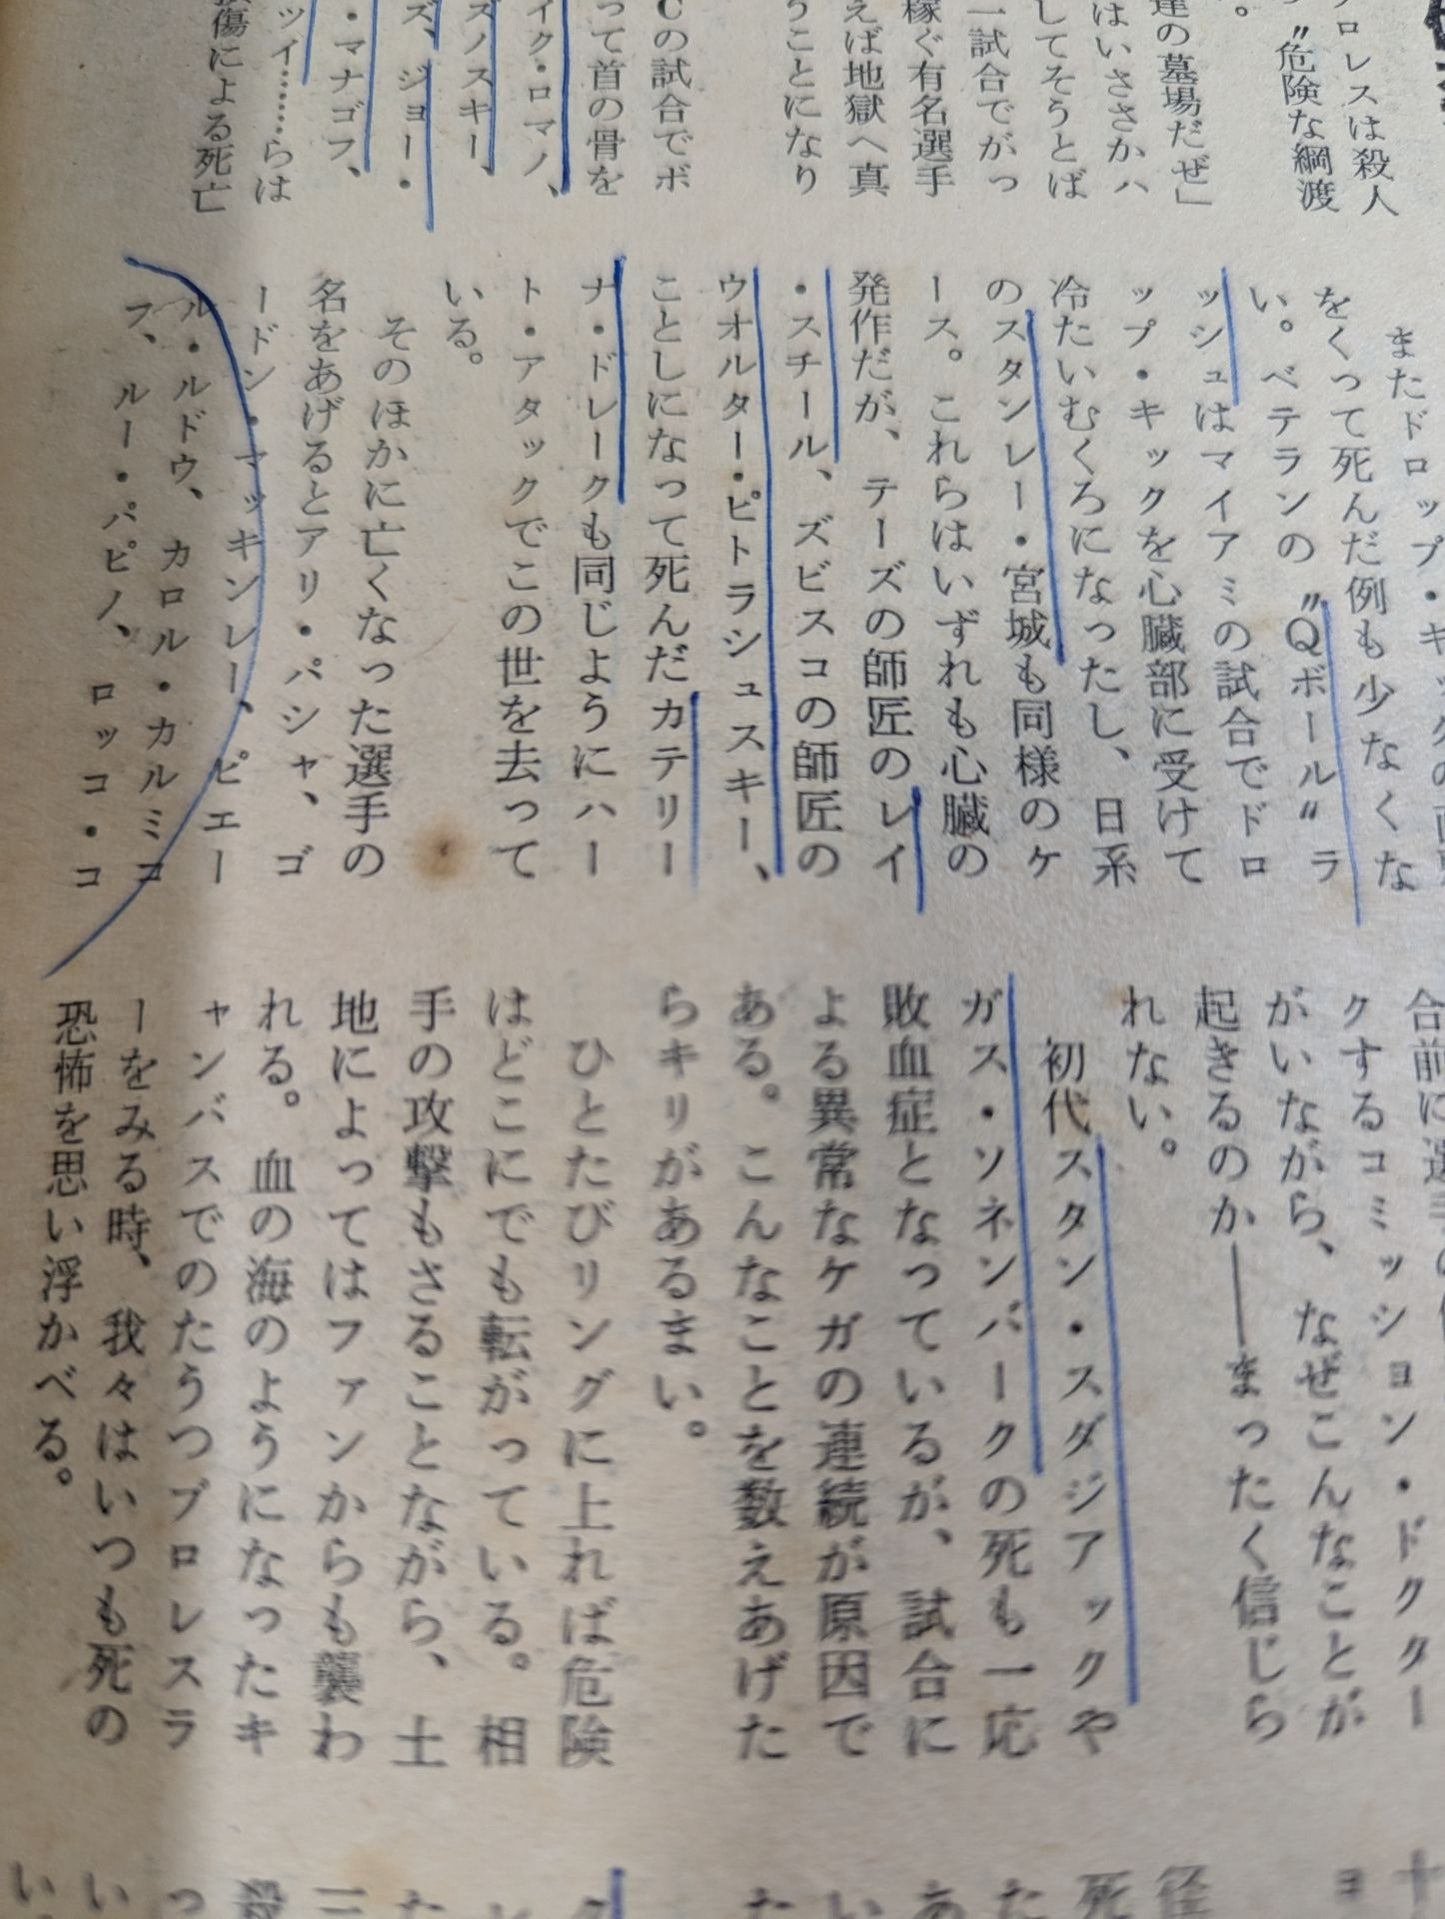 プロレスは殺人
〝危険な綱渡
。
達の墓場だぜ」
はいささかハ
してそうとば
一試合でがっ
稼ぐ有名選手
えば地獄へ真
うことになり
Cの試合でボ
って首の骨を
イク・ロマノ、
ズノスキー、
ズ、ジョー・
・マナゴフ、
ツイ……らは
損傷による死亡
またドロップ・キックの
をくって死んだ例も少なくな
い。ベテランの〝Qボール〟ラ
ッシュはマイアミの試合でドロ
ップ・キックを心臓部に受けて
冷たいむくろになったし、日系
のスタンレー・宮城も同様のケ
ース。これらはいずれも心臓の
発作だが、テーズの師匠のレイ
・スチール、ズビスコの師匠の
ウオルター・ピトラシュスキー、
ことしになって死んだカテリー
ナ・ドレークも同じようにハー
ト・アタックでこの世を去って
いる。
そのほかに亡くなった選手の
名をあげるとアリ・パシャ、ゴ
ードン・マッキンレー、ピエー
ル・ルドウ、カロル・カルミコ
フ、ルー・パピノ、ロッコ・コ
合前に選手の
クするコミッション・ドクター
がいながら、なぜこんなことが
起きるのか――まったく信じら
れない。
初代スタン・スダジアックや
ガス・ソネンバークの死も一応
敗血症となっているが、試合に
よる異常なケガの連続が原因で
ある。こんなことを数えあげた
らキリがあるまい。
ひとたびリングに上れば危険
はどこにでも転がっている。相
手の攻撃もさることながら、土
地によってはファンからも襲わ
れる。血の海のようになったキ
ャンバスでのたうつプロレスラ
ーをみる時、我々はいつも死の
恐怖を思い浮かべる。